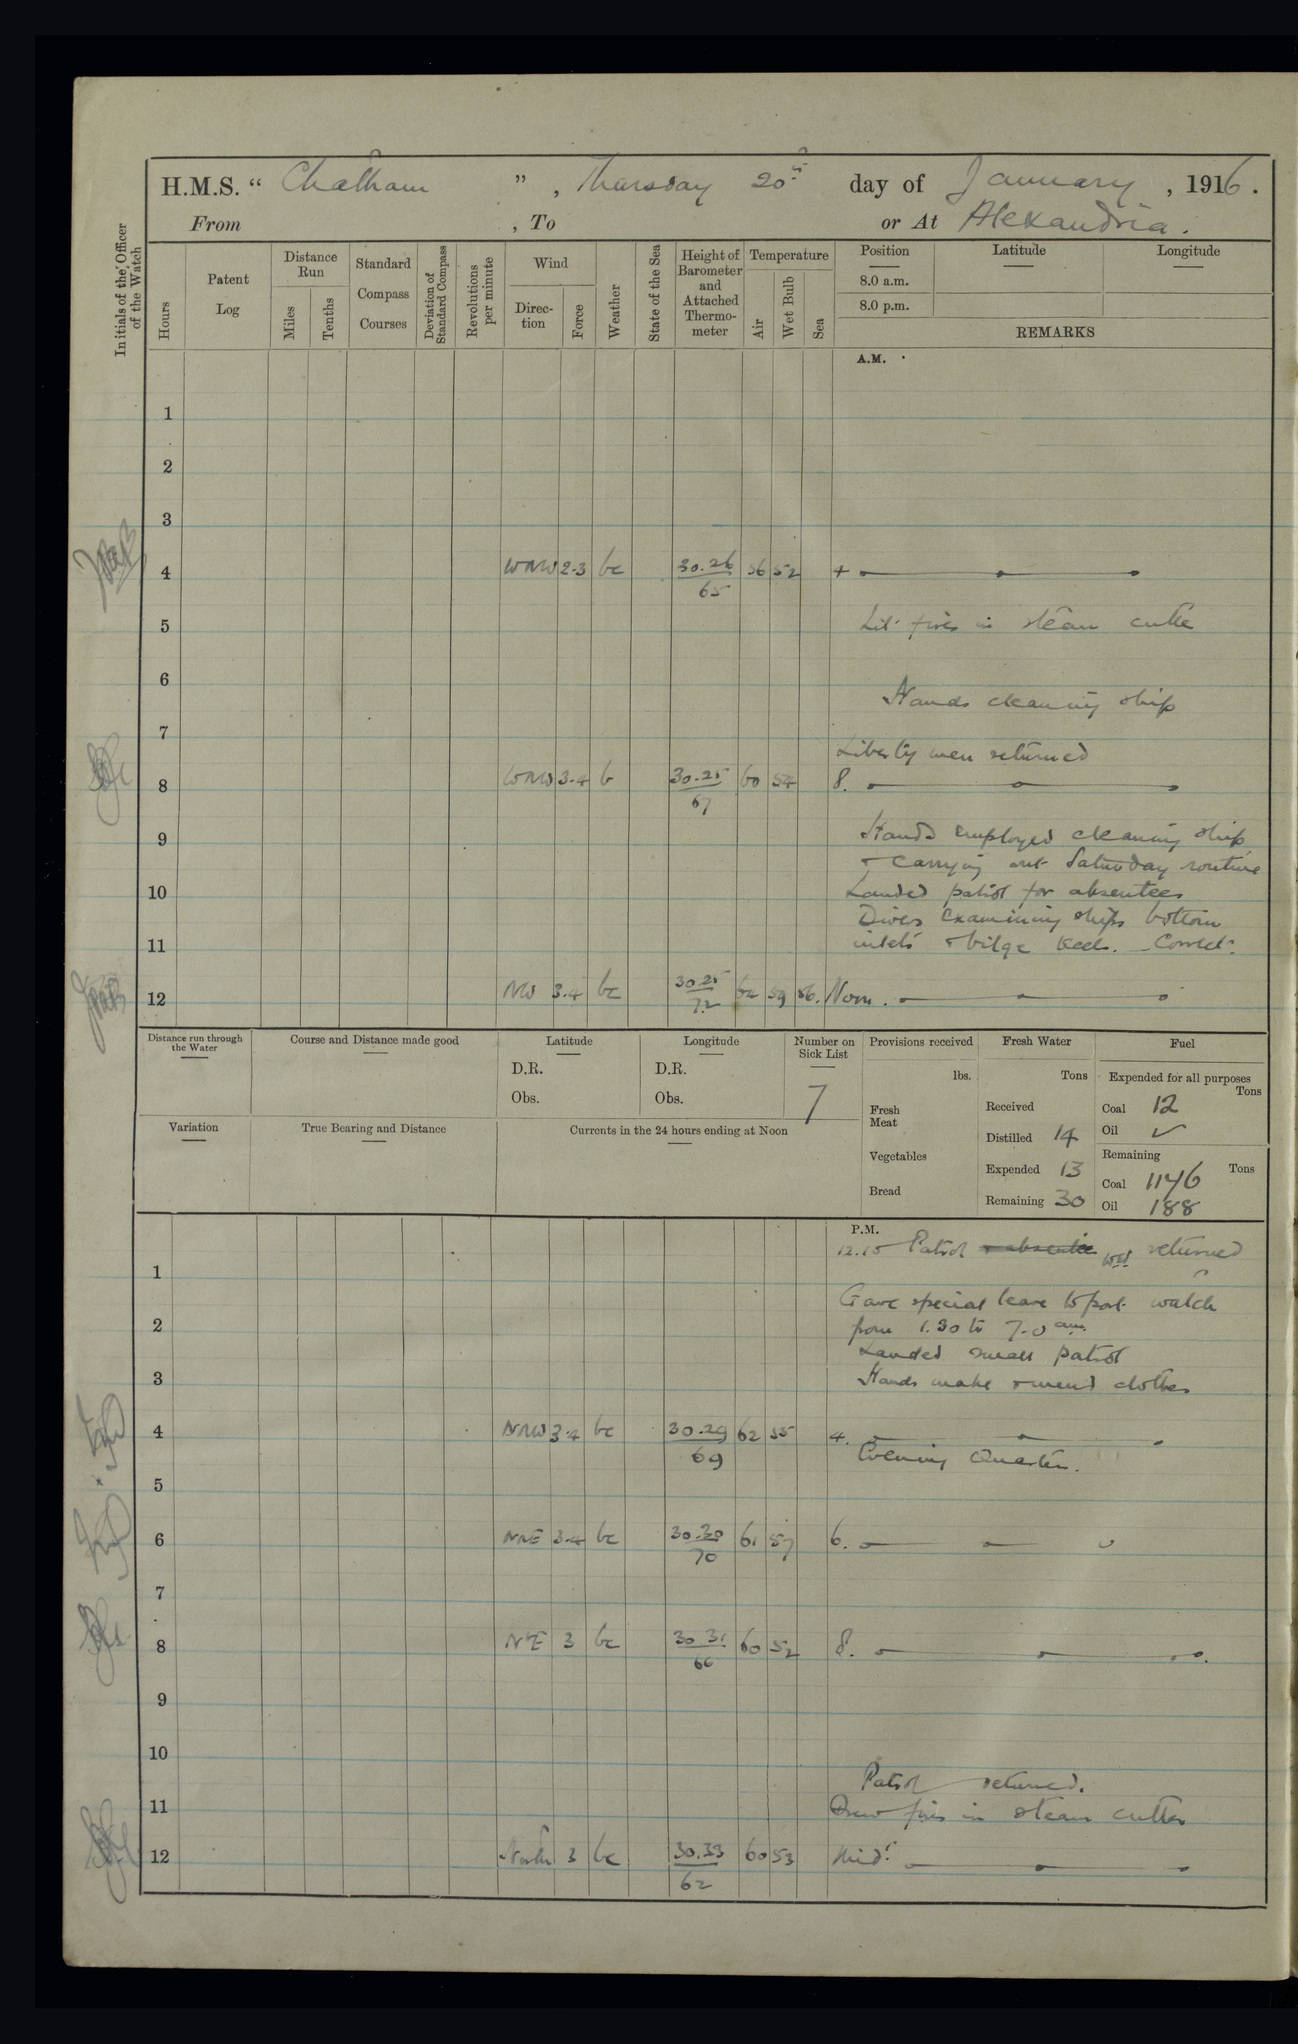 H.M.S. “ Chatham ” , Thursday 20th day of January , 1916 .
From , To or At Alexandria .
Initials of the Officer of the Watch
Hours
Patent Log
Distance Run
Miles
Tenths
Standard Compass Courses
Deviation of Standard Compass
Revolutions per minute
Wind
Direc- tion
Force
Weather
State of the Sea
Height of Barometer and Attached Thermo- meter
Temperature
Air
Wet Bulb
Sea
Position
Latitude
Longitude
8.0 a.m.
8.0 p.m.
REMARKS
A.M.
1
2
3
4 WNW 2-3 bc 30.26 65 56 52 4
5 Lit fires in steam cutter
6
Hands cleaning ship
7
Liberty men returned
8 WNW 3-4 b 30.25 67 60 54 8.
9 Hands employed cleaning ship
+ carrying out Saturday routine
10 Landed patrol for absentees
Divers examining ships bottom
11 inlets + bilge keels. Correct.
12 NW 3.4 bc 30.25 72 62 59 56. Noon.
Distance run through the Water
Course and Distance made good
Latitude
D.R.
Obs.
Longitude
D.R.
Obs.
Number on Sick List
7
Provisions received
lbs.
Fresh Meat
Vegetables
Bread
Fresh Water
Tons
Received
Distilled 14
Expended 13
Remaining 30
Fuel
Expended for all purposes
Tons
Coal 12
Oil ✓
Remaining
Tons
Coal 1146
Oil 188
Variation
True Bearing and Distance
Currents in the 24 hours ending at Noon
P.M.
12.15 Patrol returned
1
Gave special leave to port watch
2 from 1.30 to 7.0 am.
Landed small patrol
3 Hands make + mend clothes
4 NNW 3.4 bc 30.29 69 62 55 4.
Evening Quarters.
5
6 NNE 3.4 bc 30.30 70 61 57 6.
7
8 NE 3 bc 30.31 66 60 52 8.
9
10
Patrol returned.
11 Drew fires in steam cutter
12 North 3 bc 30.33 62 60 53 Midt.